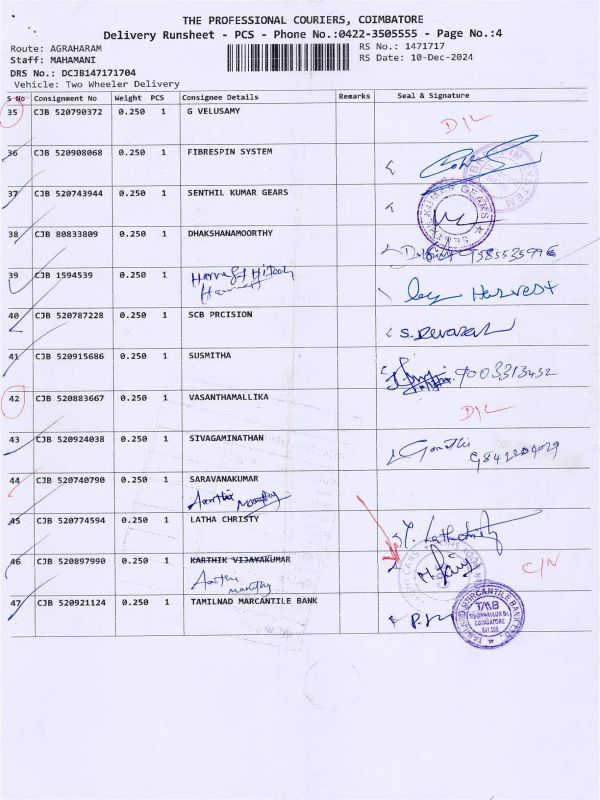 THE PROFESSIONAL COURIERS, COIMBATORE
Delivery Runsheet - PCS - Phone No.:0422-3505555 - Page No.:4
Route: AGRAHARAM
RS No.: 1471717
Staff: MAHAMANI
RS Date: 10-Dec-2024
DRS No.: DCJB147171704
Vehicle: Two Wheeler Delivery
S No Consignment No Weight PCS Consignee Details Remarks Seal & Signature
35 CJB 520790372 0.250 1 G VELUSAMY D/L
36 CJB 520908068 0.250 1 FIBRESPIN SYSTEM
37 CJB 520743944 0.250 1 SENTHIL KUMAR GEARS
38 CJB 80833809 0.250 1 DHAKSHANAMOORTHY 9585535996
39 CJB 1594539 0.250 1 Harvest Hitech Harvest
40 CJB 520787228 0.250 1 SCB PRCISION S. Devaraj
41 CJB 520915686 0.250 1 SUSMITHA 9003313432
42 CJB 520883667 0.250 1 VASANTHAMALLIKA D/L
43 CJB 520924038 0.250 1 SIVAGAMINATHAN
44 CJB 520740790 0.250 1 SARAVANAKUMAR
45 CJB 520774594 0.250 1 LATHA CHRISTY
46 CJB 520897990 0.250 1 KARTHIK VIJAYAKUMAR C/N
47 CJB 520921124 0.250 1 TAMILNAD MARCANTILE BANK
TMB
COIMBATORE